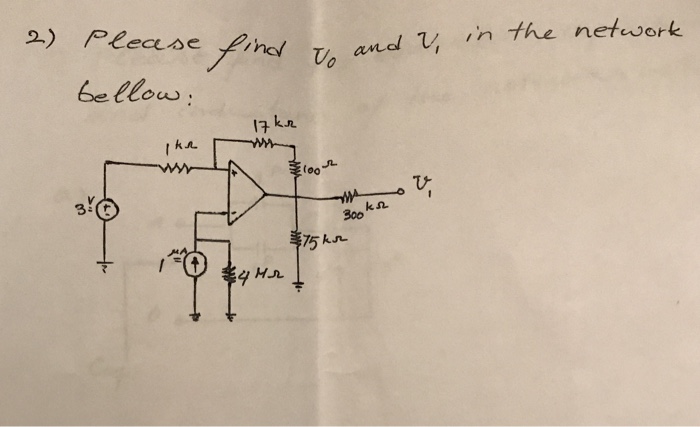 2) Please find v₀ and v₁ in the network
bellow:
17 kΩ
1 kΩ
100 Ω
+
v₁
3 V
+
-
300 kΩ
75 kΩ
1 μA
4 MΩ